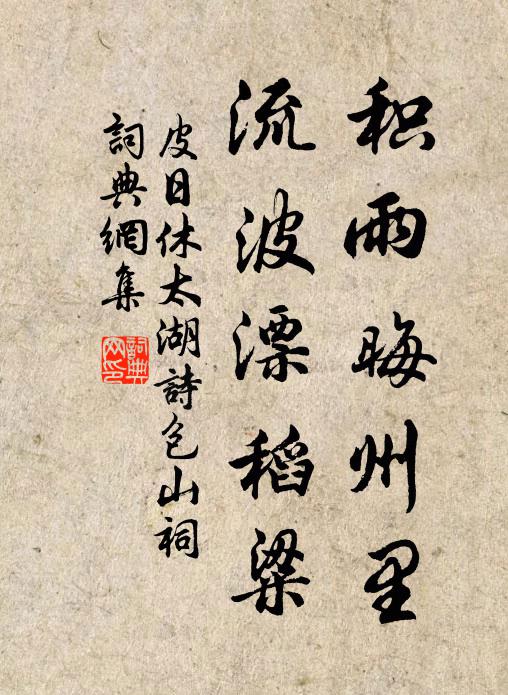 积雨晦州里
流波漂稻粱
皮日休太湖詩包山祠
詞典網集
詞典网印